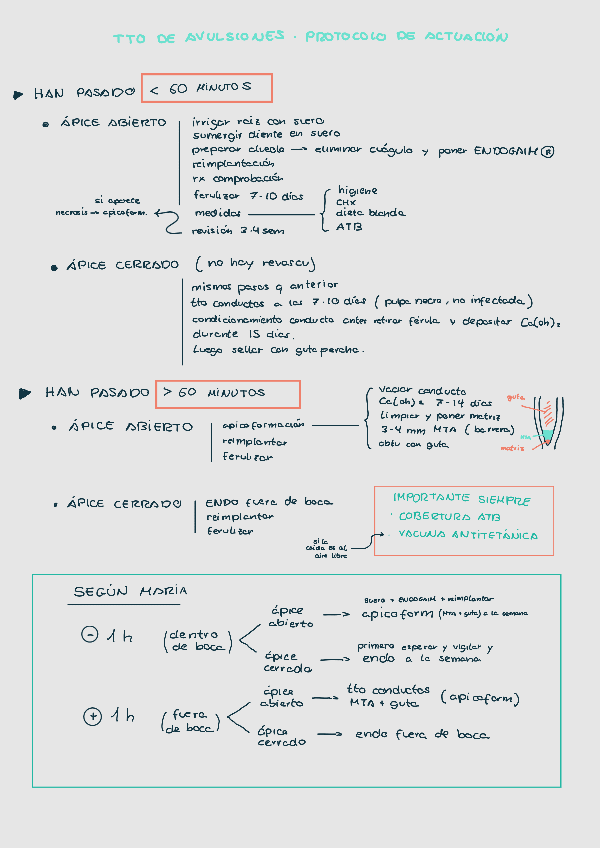 TTO DE AVULSIONES · PROTOCOLO DE ACTUACIÓN
▶ HAN PASADO < 60 MINUTOS
• ÁPICE ABIERTO
irrigar raiz con suero
sumergir diente en suero
preparar alveolo → eliminar coágulo y poner ENDOGAIM ®
reimplantación
rx comprobación
ferulizar 7-10 días
medidas
higiene
CHX
dieta blanda
ATB
revisión 3-4 sem
si aparece
necrosis → apicoform.
• ÁPICE CERRADO (no hay revascu)
mismos pasos q anterior
tto conductos a los 7-10 días (pulpa necro, no infectada)
condicionamiento conducto antes retirar férula y depositar Ca(oh)2
durante 15 días.
Luego sellar con gutapercha.
▶ HAN PASADO > 60 MINUTOS
• ÁPICE ABIERTO
apicoformación
reimplantar
ferulizar
vaciar conducto
Ca(oh)2 7-14 días
Limpiar y poner matriz
3-4 mm MTA (barrera)
obtu con guta
guta
matriz
• ÁPICE CERRADO
ENDO fuera de boca
reimplantar
ferulizar
IMPORTANTE SIEMPRE
· COBERTURA ATB
· VACUNA ANTITETÁNICA
si la
caída es al
aire libre
SEGÚN MARÍA
⊖ 1 h (dentro de boca)
ápice abierto
suero + ENDOGAIM + reimplantar
→ apicoform (MTA + guta) a la semana
ápice cerrado
primero esperar y vigilar y
→ endo a la semana
⊕ 1 h (fuera de boca)
ápice abierto
→ tto conductos (apicoform)
MTA + guta
ápice cerrado
→ endo fuera de boca